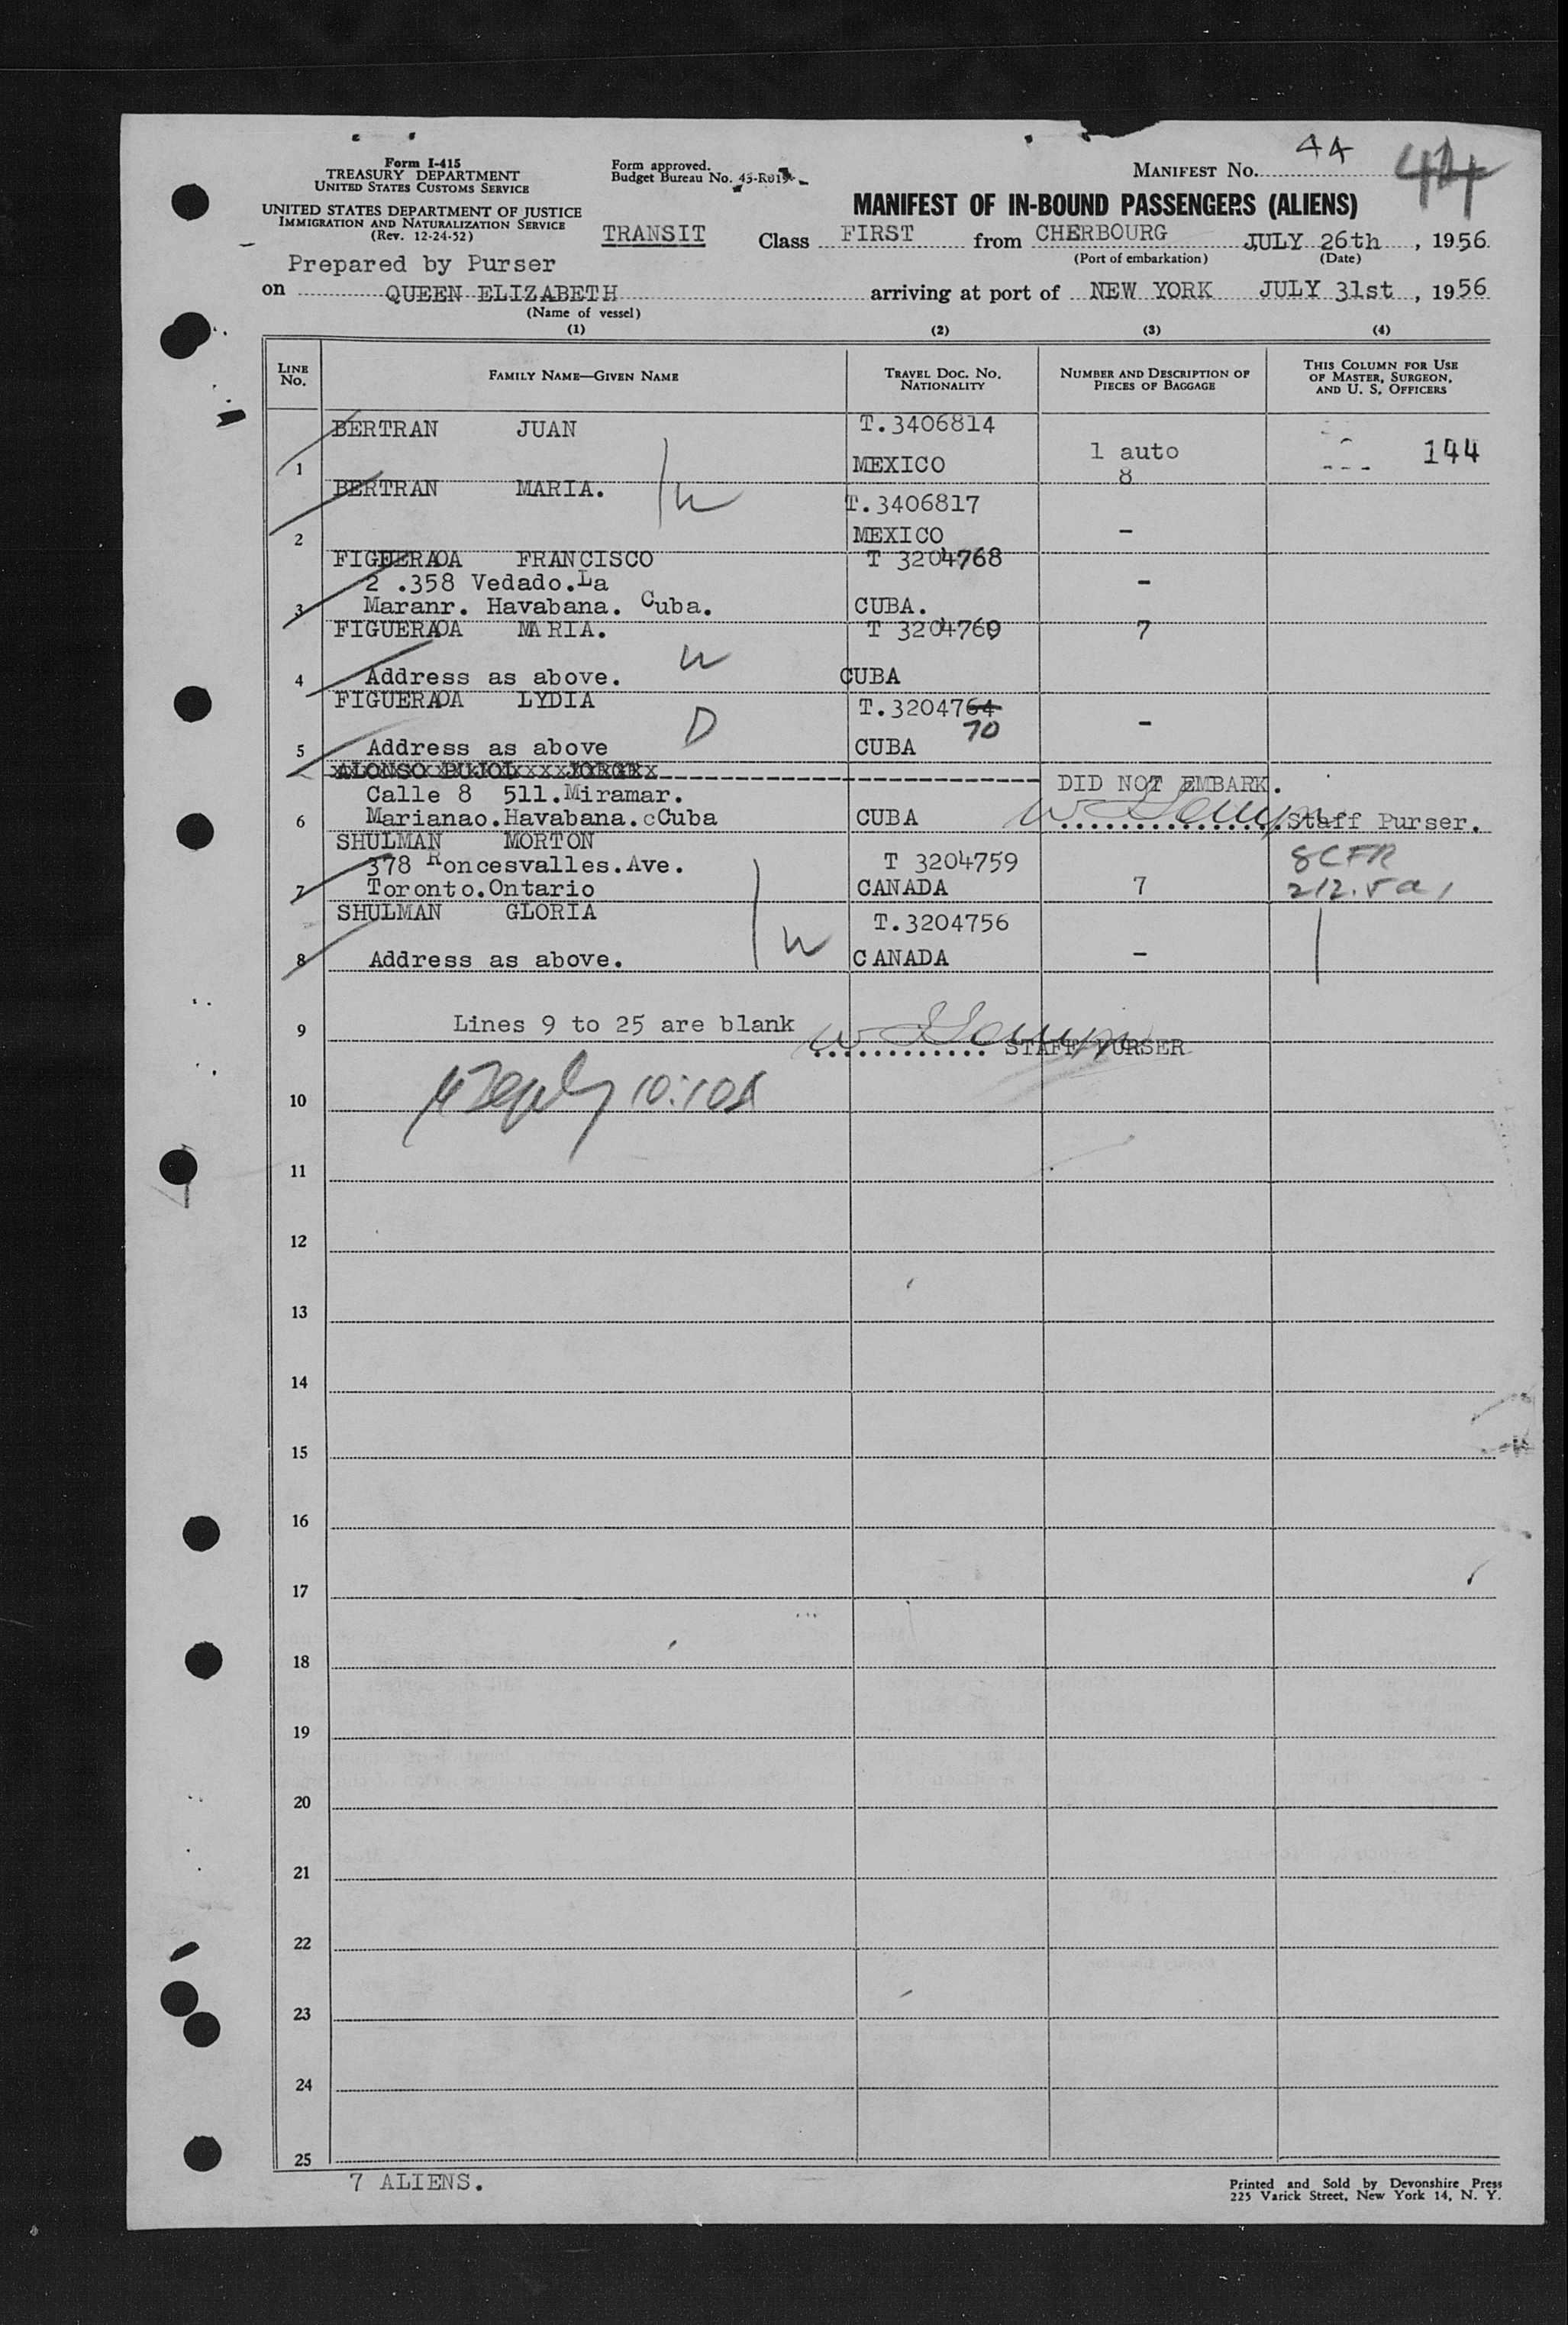 Form I-415
TREASURY DEPARTMENT
UNITED STATES CUSTOMS SERVICE
UNITED STATES DEPARTMENT OF JUSTICE
IMMIGRATION AND NATURALIZATION SERVICE
(Rev. 12-24-52)
Form approved.
Budget Bureau No. 43-R019
MANIFEST No. 44
44
MANIFEST OF IN-BOUND PASSENGERS (ALIENS)
TRANSIT Class FIRST from CHERBOURG JULY 26th, 1956
(Port of embarkation) (Date)
Prepared by Purser
on QUEEN ELIZABETH arriving at port of NEW YORK JULY 31st, 1956
(Name of vessel)
(1) (2) (3) (4)
LINE No. FAMILY NAME—GIVEN NAME TRAVEL DOC. NO. NATIONALITY NUMBER AND DESCRIPTION OF PIECES OF BAGGAGE THIS COLUMN FOR USE OF MASTER, SURGEON, AND U. S. OFFICERS
BERTRAN JUAN T.3406814
1 MEXICO 1 auto 144
8
BERTRAN MARIA. T.3406817
2 MEXICO –
FIGUERAOA FRANCISCO T 3204768
2 .358 Vedado.La –
3 Maranr. Havabana. Cuba. CUBA.
FIGUERAOA MARIA. T 3204769 7
4 Address as above. CUBA
FIGUERAOA LYDIA T.3204764 –
D 70
5 Address as above CUBA
ALONSO PUJOL JORGE DID NOT EMBARK.
Calle 8 511.Miramar.
6 Marianao.Havabana.cCuba CUBA Staff Purser.
SHULMAN MORTON
378 Roncesvalles.Ave. T 3204759 8CFR
7 Toronto.Ontario CANADA 7 212.5a1
SHULMAN GLORIA T.3204756
8 Address as above. CANADA –
9 Lines 9 to 25 are blank STAFF PURSER
10 10:10A
11
12
13
14
15
16
17
18
19
20
21
22
23
24
25
7 ALIENS.
Printed and Sold by Devonshire Press
225 Varick Street, New York 14, N. Y.